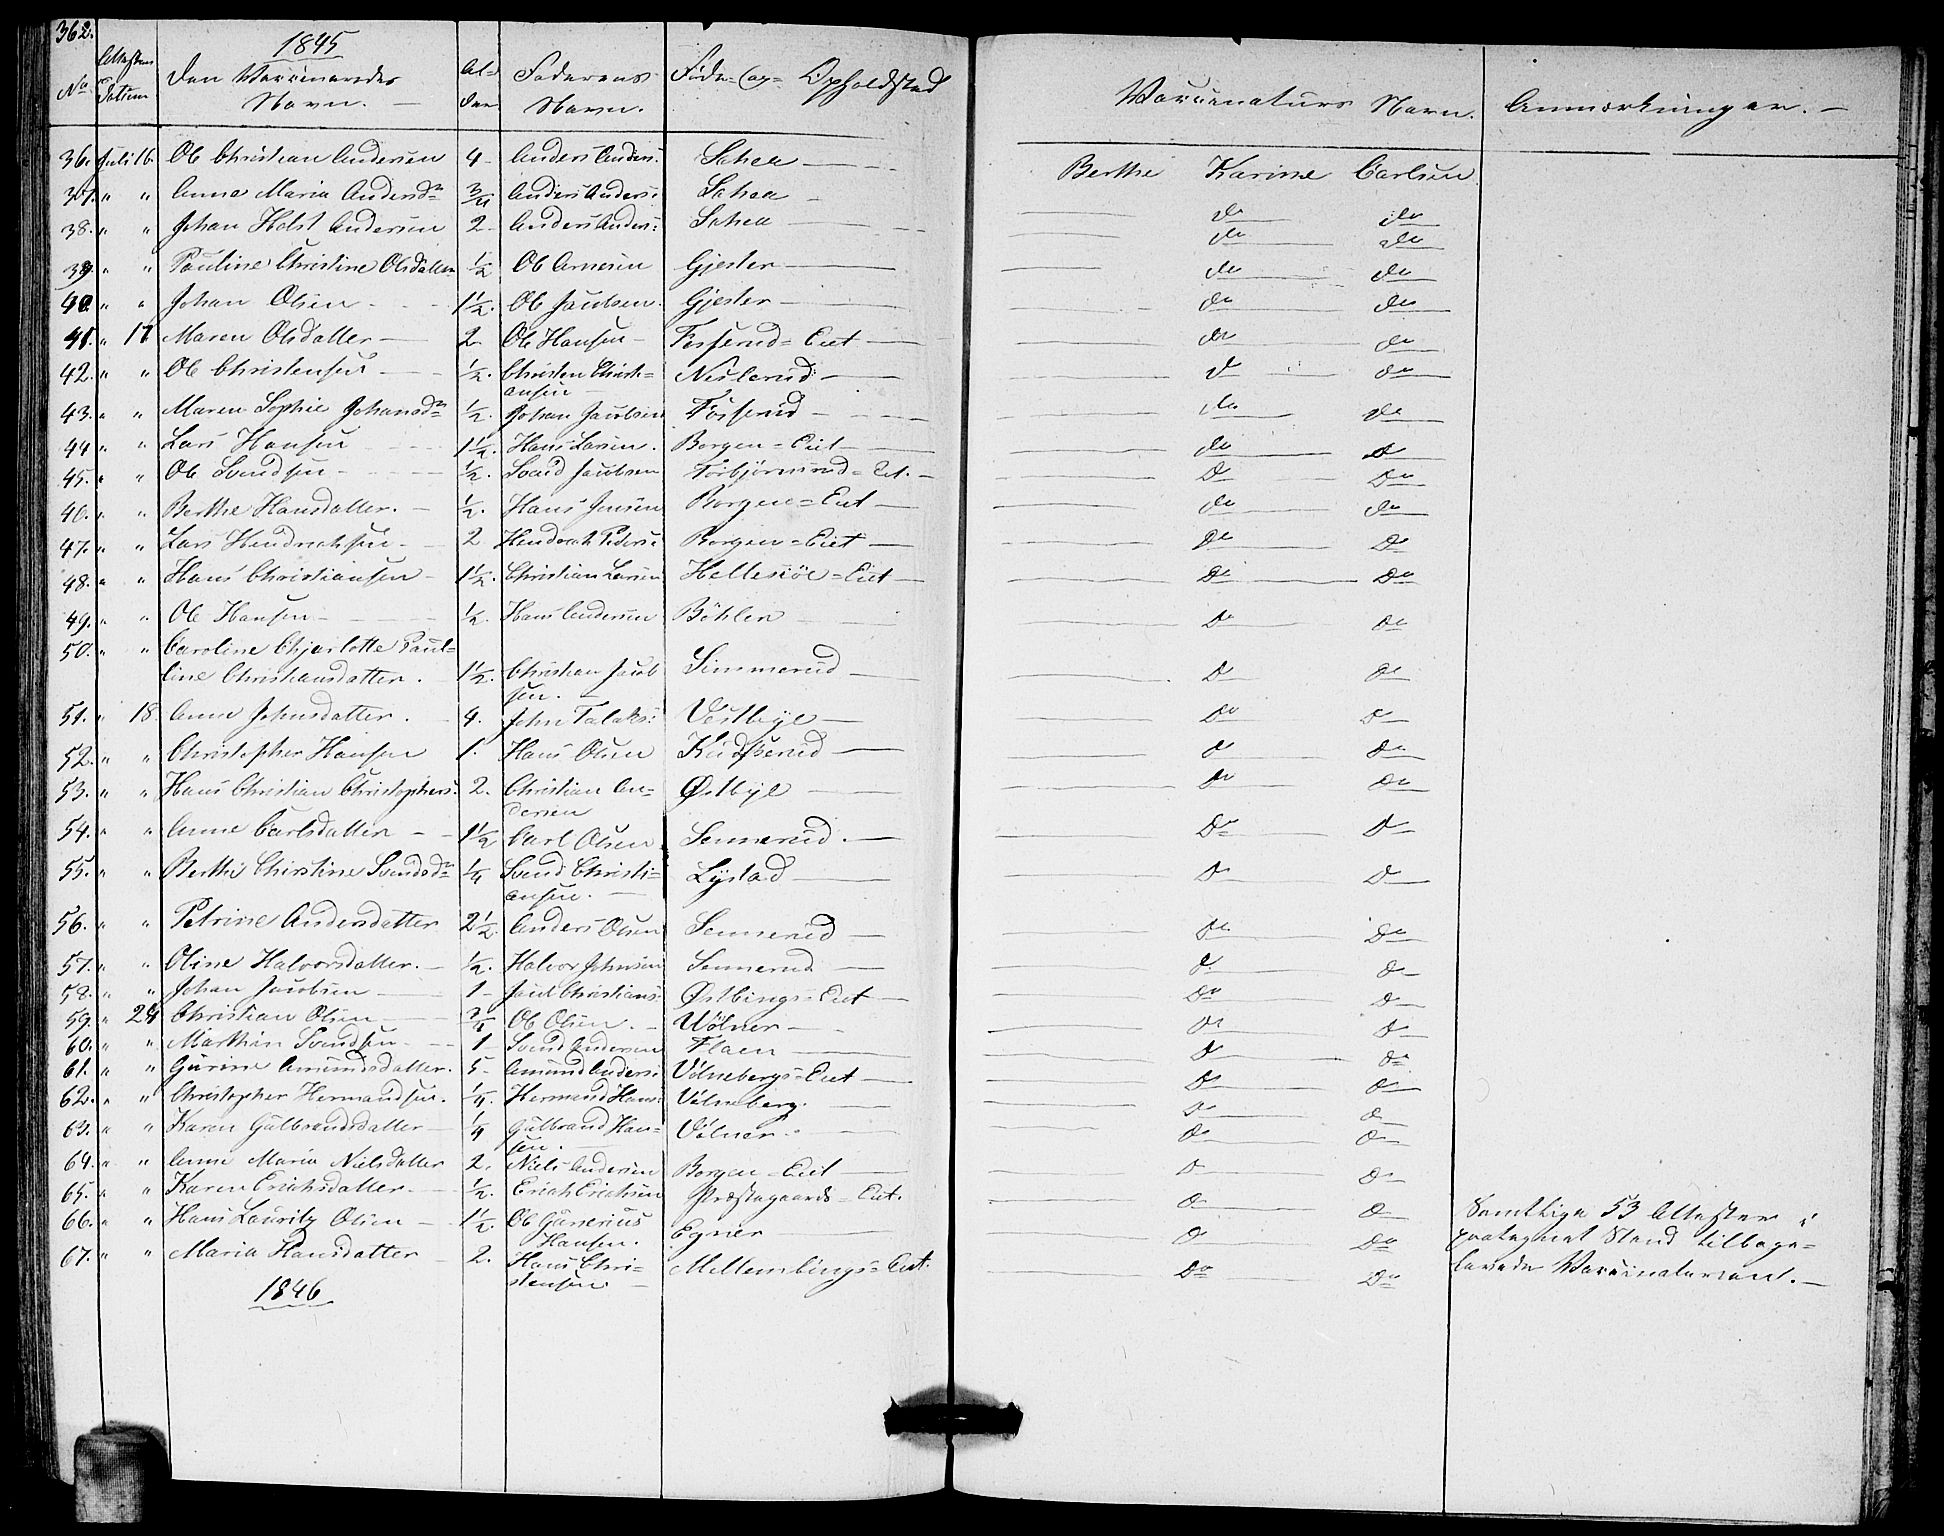 362.
1845
No Attestens Datum Den Vaccineredes Navn. Al- der Faderens Navn. Føde- og Opholdsstad Vaccinateurs Navn. Anmærkninger.
36. Juli 16. Ole Christian Andersen 4 Anders Anders: Sahea Berthe Karine Carlsen
37. " " Anna Maria Andersdr 3/4 Anders Anders: Sahea do do
38. " " Johan Holst Andersen 2 Anders Anders: Sahea do do
39. " " Pauline Christine Olsdatter 1/2 Ole Arnesen Gjester do do
40. " " Johan Olsen 1 1/2. Ole Jacobsen Gjester do do
41. " 17 Maren Olsdatter 2 Ole Hansen Fosserud=Eiet do do
42. " " Ole Christensen 1/2. Christen Christi=ansen Neslerud do do
43. " " Maren Sophie Johansdr 1/2. Johan Jacobsen Fosserud do do
44 " " Lars Hansen 1 1/2. Hans Larsen. Borgen=Eiet do do
45. " " Ole Svendsen 1/2. Svend Jacobsen Torbjørnsrud=Et. do do
46. " " Berthe Hansdatter. 1/2. Hans Jensen Borgen=Eiet do do
47. " " Lars Hendrichsen 2 Hendrich Peders: Borgen=Eiet do do
48. " " Hans Christiansen 1 1/2. Christian Larsen Hellesiøe=Eiet do do
49. " " Ole Hansen 1/2. Hans Andersen Böhler do do
50. " " Caroline Chjarlotte Paul=
line Christiansdatter. 1 1/2. Christian Jacobsen. Simmerud do do
51. " 18. Anne Johnsdatter. 4. John Talaks: Vestbye do do
52. " " Christopher Hansen 1. Hans Olsen do do
53. " " Hans Christian Christophers: 2. Christian An=dersen Østbye do do
54. " " Anne Carlsdatter 1 1/2 Carl Olsen. Sennerud. do do
55. " " Berthe Christine Svendsdr 1/4 Svend Christi=ansen. Lystad do do
56. " " Petrine Andersdatter 2 1/2. Anders Olsen Sennerud do do
57. " " Oline Halvorsdatter. 1/2. Halvor Johnsen Sennerud do do
58. " " Johan Jacobsen 1 Jacob Christians: Østbings=Eiet do do
59. " 24 Christian Olsen 3/4 Ole Olsen. Völner do do
60. " " Marthin Svendsen 1 Svend Andersen Flaen do do
61. " " Gurine Amundsdatter. 5 Amund Anders: Völneberg=Eiet do do
62. " " Christopher Hermandsen. 1/4. Hermand Hans: Völneberg. do do
63. " " Karen Gulbrandsdatter 1/4 Gulbrand Han=sen. Völner do do
64. " " Anne Maria Nielsdatter 2. Niels Andersen Borgen=Eiet do do
65. " " Karen Erichsdatter 1/2. Erich Erichsen Præstegaards=Eiet. do do
66. " " Hans Lauritz Olsen 1 1/2. Ole Gunerius Hansen. Egner do do
67. " " Maria Hansdatter 2. Hans Chri=stensen Mellembings=Eiet. do do
Samtlige 53 Attester i
protegneet Stand tilbage=
leverede Vaccinateurent.
1846